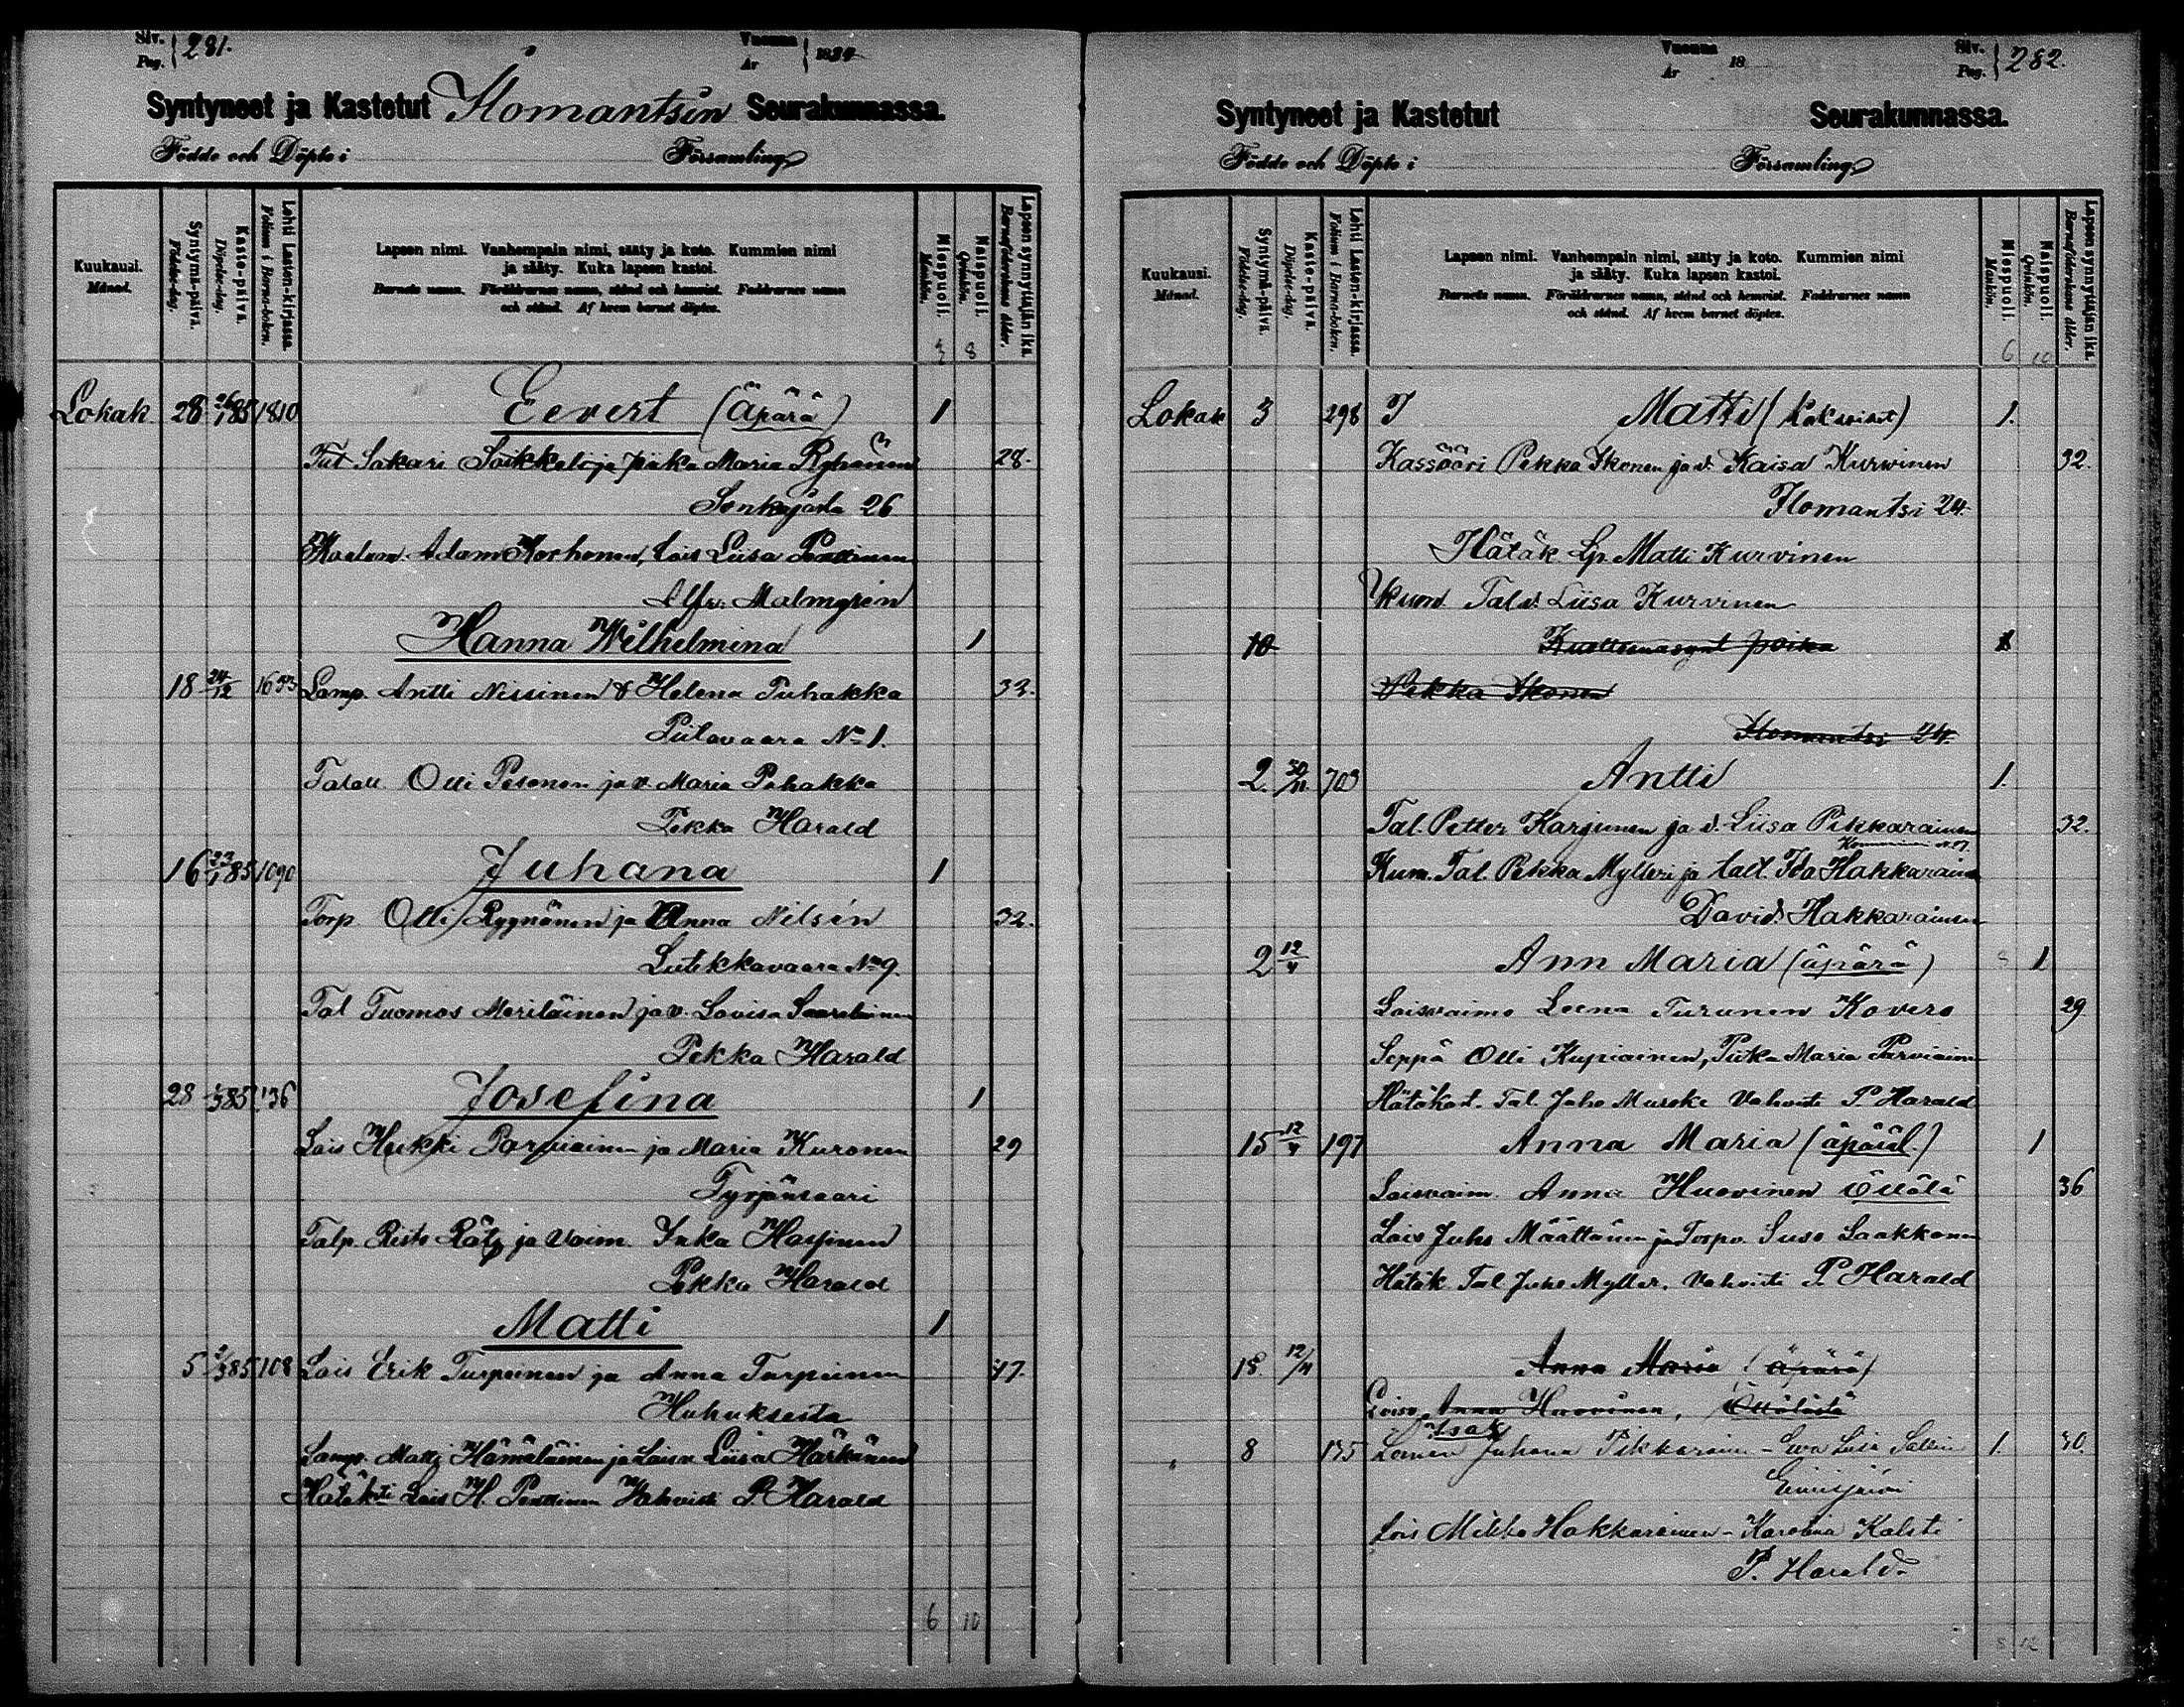 Siv. Pag. 281.
Vuonna År 1884
Syntyneet ja Kastetut Ilomantsin Seurakunnassa.
Födde och Döpte i Församling
Kuukausi. Månad.
Syntymä-päivä. Födelse-dag.
Kaste-päivä. Döpelse-dag.
Lehti Lasten-kirjassa. Folium i Barna-boken.
Lapsen nimi. Vanhempain nimi, sääty ja koto. Kummien nimi
ja sääty. Kuka lapsen kastoi.
Barnets namn. Föräldrarnes namn, stånd och hemvist. Faddrarnes namn
och stånd. Af hvem barnet döptes.
Miespuoli. Mankön.
Naispuoli. Qvinkön.
Lapsen synnyttäjän ikä. Barnaföderskans ålder.
3 8
Lokak 28 26/1 85 1810 Eevert (Äpärä) 1
Tut Sakari Saikkeli ja piika Maria Ryhänen 28.
Sonkajasta 26
Adam Korhonen, lois Liisa Penttinen
Alfr. Malmgren
Hanna Wilhelmina 1
18 24/12 Lamp. Antti Nissinen & Helena Tuhakka 32.
Piilovaara No 1.
Talall Olli Pesonen ja v. Maria Puhakka
Pekka Harald
16 23/1 85 1090 Juhana 1
Torp Olli Ryynänen ja Anna Nilsén 32.
Liitekkavaara No 9.
Tal Tuomas Meriläinen ja v. Lovisa Saarelainen
Pekka Harald
28 85 136 Josefina 1
Lois Heikki Parviainen ja Maria Kuronen 29
Tyrjänsaari
Talp. Risto Räty ja Vaim. Inka Haspinen
Pekka Harald
Matti 1
5 85 108 Lois Erik Turpeinen ja Anna Turpeinen 47.
Huhuksesta
Lamp. Matti Hämäläinen ja Loisv Liisa Härkönen
Hätäk:ti Lois H. Penttinen Vahvisti P. Harald
6 10
Vuonna År 18
Siv. Pag. 282.
Syntyneet ja Kastetut Seurakunnassa.
Födde och Döpte i Församling
Kuukausi. Månad.
Syntymä-päivä. Födelse-dag.
Kaste-päivä. Döpelse-dag.
Lehti Lasten-kirjassa. Folium i Barna-boken.
Lapsen nimi. Vanhempain nimi, sääty ja koto. Kummien nimi
ja sääty. Kuka lapsen kastoi.
Barnets namn. Föräldrarnes namn, stånd och hemvist. Faddrarnes namn
och stånd. Af hvem barnet döptes.
Miespuoli. Mankön.
Naispuoli. Qvinkön.
Lapsen synnyttäjän ikä. Barnaföderskans ålder.
6 10
Lokak 3 298 Matti (kaksoiset) 1.
Kassööri Pekka Ikonen ja v. Kaisa Kurvinen 32.
Ilomantsi 24.
Hätäk. Lp. Matti Kurvinen
Kum. Tal. v. Liisa Kurvinen
10 Kuollunasynt poika 1
Pekka Ikonen
Ilomantsi 24.
2. 30/11 703 Antti 1.
Tal. Petter Karjunen ja v. Liisa Pikkarainen 32.
Kum. Tal. Pekka Mylleri ja talt. Ida Hakkarainen
David Hakkarainen
2 12/4 Ann Maria (äpärä) 1
Loisvaimo Leena Turunen Kovero 29
Seppä Olli Kupiainen, Piika Maria Parviainen
Hätäkast. Tal. Juho Vahvisti P. Harald
15 12/4 197 Anna Maria (äpäräl.) 1
Loisvaim. Anna Huovinen Öllölä 36
Lois Juho Määttänen ja Torpv. Suso Laakkonen
Hätäk. Tal Juho Myller. Vahvisti P. Harald
18. 12/4 Anna Maria (äpärä)
Loisv. Anna Huovinen, Öllölästä
Isak
" 8 135 Juhana Pikkarainen - Ewa Liisa 1. 30.
Lois Mikko Hakkarainen - Karolina
P. Harald.
8 12